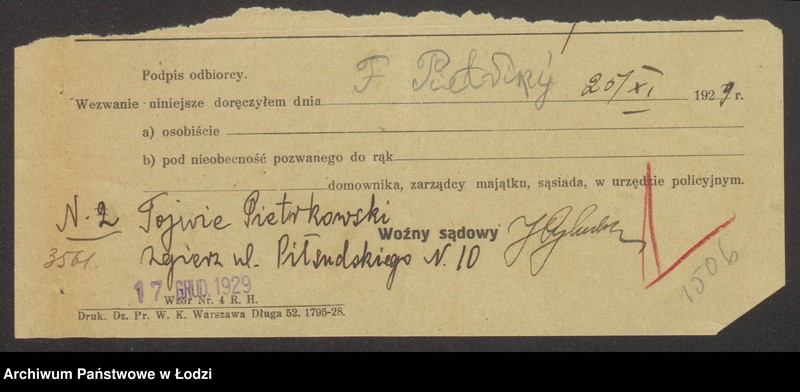 Podpis odbiorcy. F
Wezwanie niniejsze doręczyłem dnia 25/XI 1929 r.
a) osobiście
b) pod nieobecność pozwanego do rąk
domownika, zarządcy majątku, sąsiada, w urzędzie policyjnym.
N. 2 Tojwie Pietrkowski
Woźny sądowy
3561. Zgierz ul. Piłsudskiego N. 10
1506
17 GRUD. 1929
Wzór Nr. 4 R. H.
Druk. Dz. Pr. W. K. Warszawa Długa 52. 1795-28.
Archiwum Państwowe w Łodzi